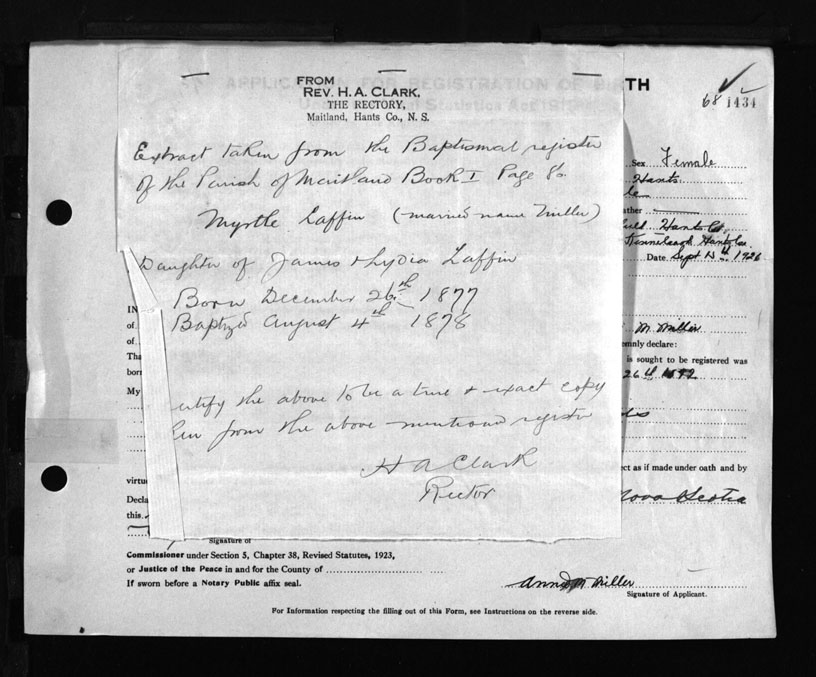 APPLICATION FOR REGISTRATION OF BIRTH
68 1434
FROM
REV. H. A. CLARK,
THE RECTORY,
Maitland, Hants Co., N. S.
Extract taken from the Baptismal register
of the Parish of Maitland Book I Page 86.
Myrtle Laffin (married name Miller)
Daughter of James & Lydia Laffin
Born December 26th 1877
Baptized August 4th 1878
certify the above to be a true & exact copy
from the above-mentioned register
H A Clark
Rector
Sex Female
Hants
Hants Co.
Date Sept 1926
IN
of
of
Tha
bor
My
M. Miller
mnly declare:
is sought to be registered was
26th
ect as if made under oath and by
virtue
Decla
this
Nova Scotia
Signature of
Commissioner under Section 5, Chapter 38, Revised Statutes, 1923,
or Justice of the Peace in and for the County of
If sworn before a Notary Public affix seal.
Annie M. Miller
Signature of Applicant.
For Information respecting the filling out of this Form, see Instructions on the reverse side.